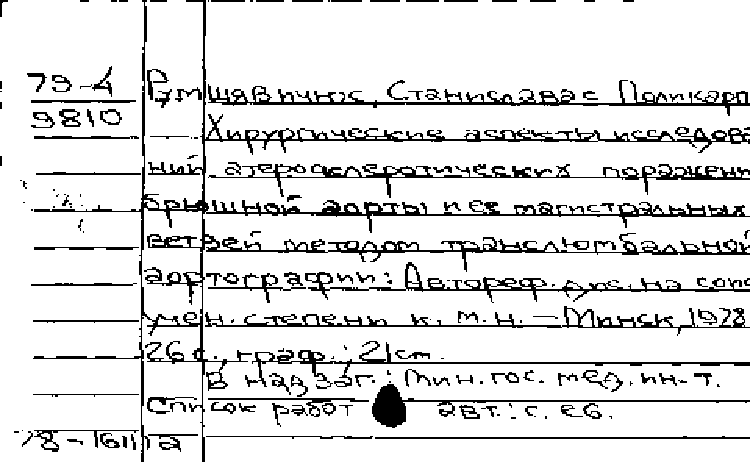 79-4
9810
Румшявичюс, Станиславас Поликарп
Хирургические аспекты исследова
ний атеросклеротических поражени
брюшной аорты и ее магистральных
ветвей методом транслюмбальной
аортографии: Автореф. дис. на соис
учен. степени к. м. н. - Минск, 1978
26 с., граф.; 21 см.
В надзаг.: Мин. гос. мед. ин-т.
Список работ авт.: с. 26.